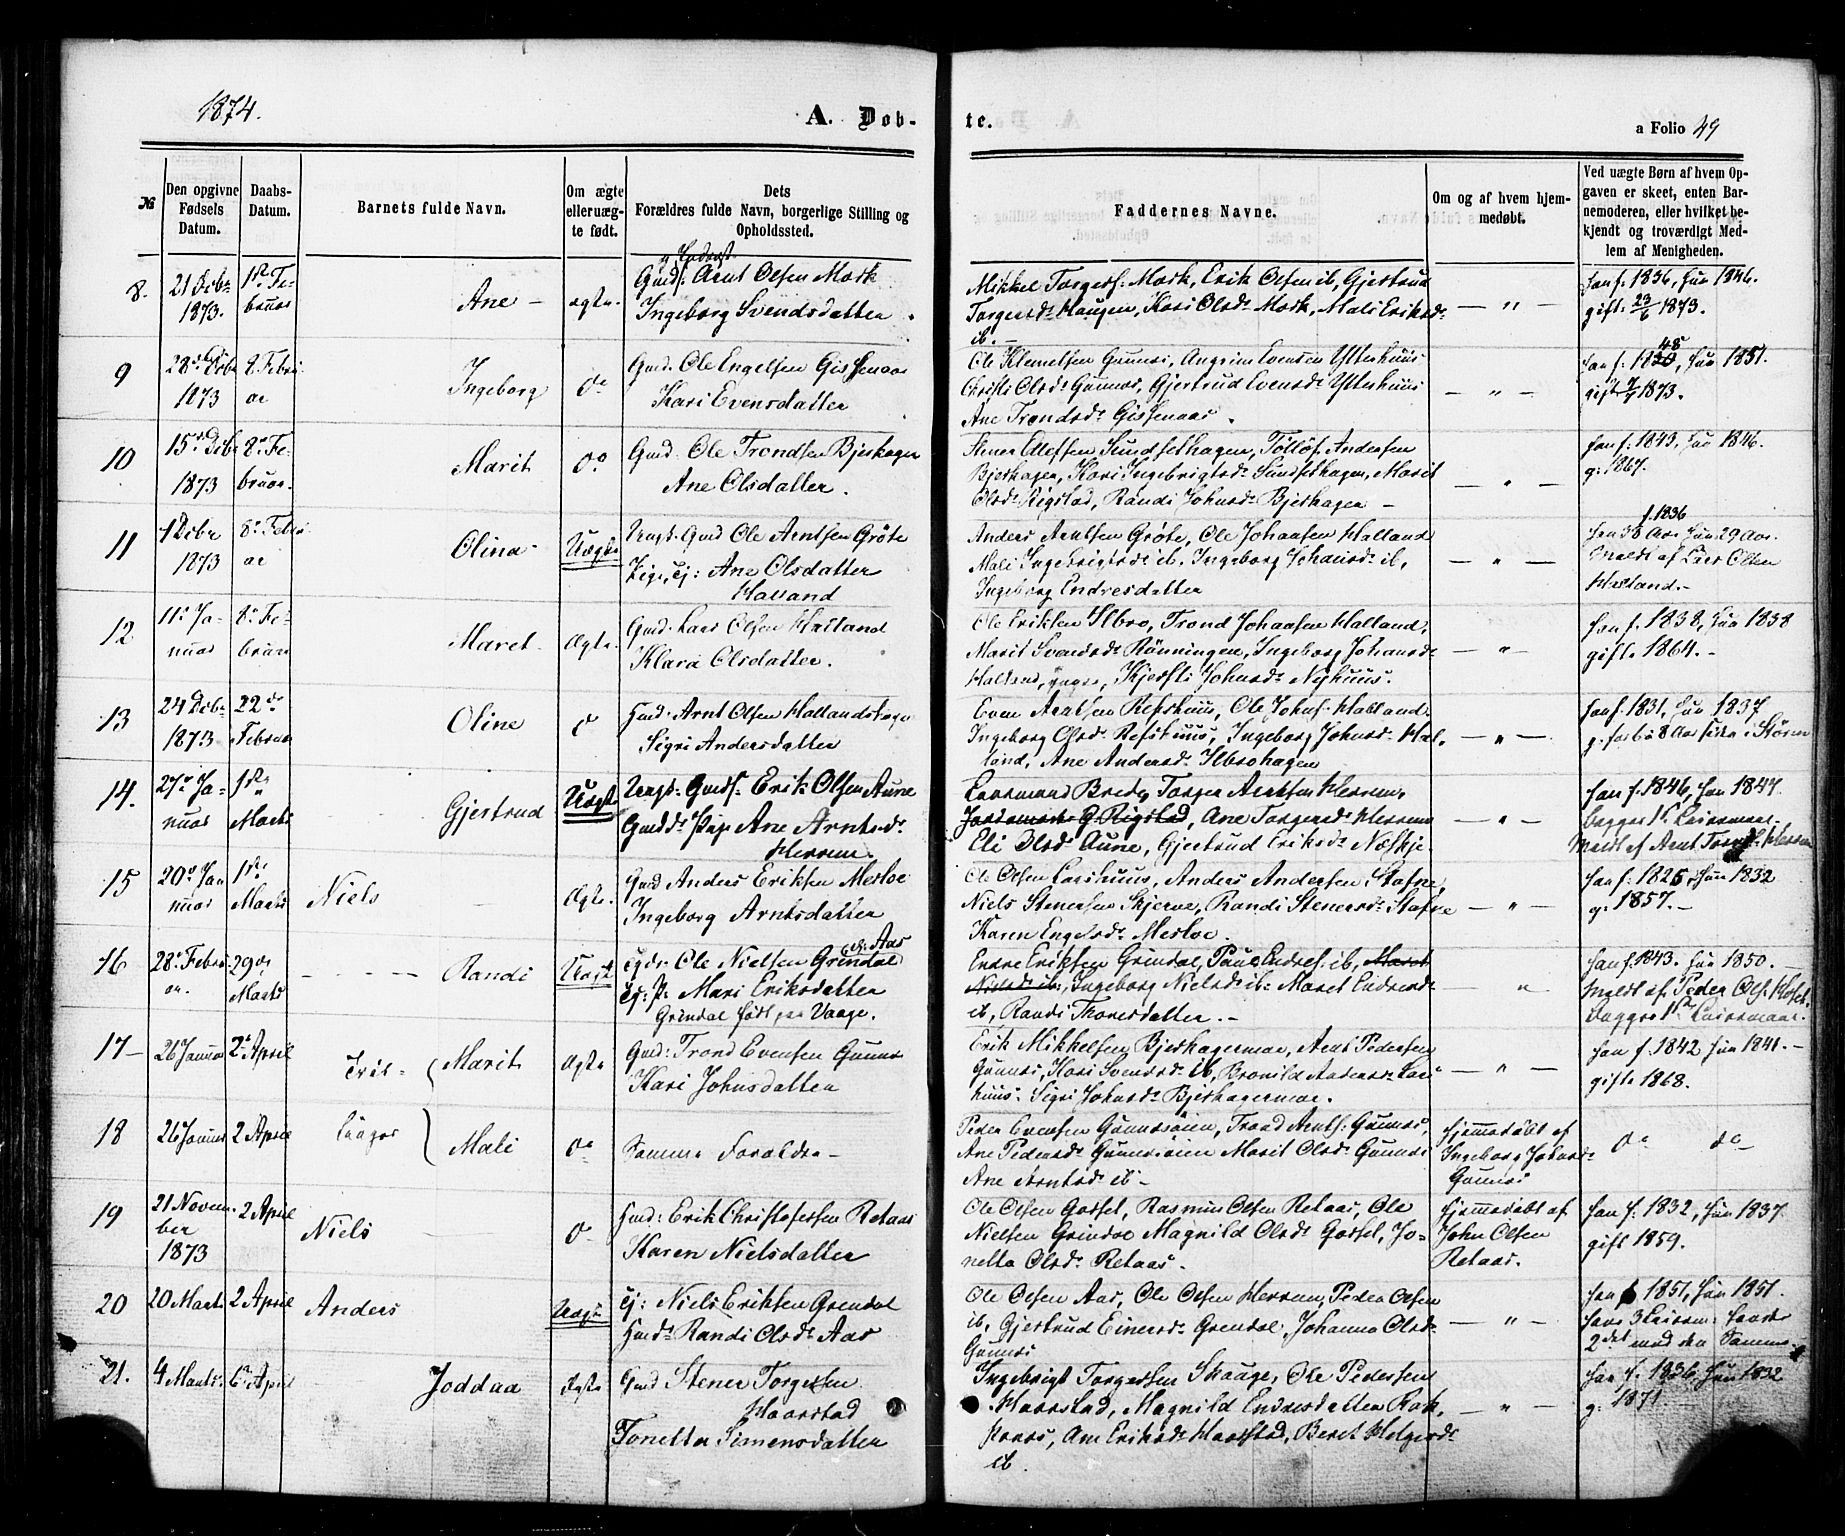 1874.
A. Døb-
te.
a Folio 49
№
Den opgivne Fødsels Datum.
Daabs-Datum.
Barnets fulde Navn.
Om ægte eller uæg-te født.
Dets Forældres fulde Navn, borgerlige Stilling og Opholdssted.
Faddernes Navne.
Om og af hvem hjem-medøbt.
Ved uægte Børn af hvem Op-gaven er skeet, enten Bar-nemoderen, eller hvilket be-kjendt og troværdigt Med-lem af Menigheden.
8.
21 Decbr
1873.
1ste Fe-
bruar
Ane -
ægte.
Arnt Olsen Mork
Ingeborg Svendsdatter.
Mikkel Torgers: Mork, Erik Olsen ib, Gjertrud
Torgersdr Haugen, Kari Olsdr Mork, Mali Eriksdr
ib. -
— " —
han f. 1836, hun 1846.
gift 23/6 1873.
9
28 Decbr
1873
8 Febru
ar
Ingeborg
do
Gmd. Ole Engelsen Gissenaas
Kari Evensdatter
Ole Klemetsen Gunnes, Angrim Evensen Ytterhuus
Christi Olsdr Gunnes, Gjertrud Evensdr Ytterhuus
Ane Trondsdr Gissenaas.
— " —
48
hun 1851.
gift 1873.
10
15 Decbr
1873
8de Fe-
bruar.
Marit
do
Gmd. Ole Trondsen Bjerkagen
Ane Olsdatter.
Stener Ellefsen Sundsethagen, Tolløf Andersen
Bjerkagen, Kari Ingebrigtsdr Sundsethagen, Marit
Olsdr Rigstad, Randi Johnsdr Bjerkagen -
— " —
han f. 1843, hun 1846.
g. 1867.
11
1 Decbr
1873
8de Febru
ar
Olina -
Uægte
Ungk. Gmd Ole Arntsen Grøte
Pige, ej: Ane Olsdatter
Halland
Anders Arntsen Grøte, Ole Johnsen Halland
Mali Ingebrigtsdr ib, Ingeborg Johnsdr ib,
Ingeborg Endresdatter
— " —
f. 1836
han 38 Aar hun 29 Aar.
Meldt af Lars Olsen
Halland. -
12
11te Ja-
nuar
8de Fe-
bruar
Maret
Ægte.
Gmd. Lars Olsen Halland
Klara Olsdatter.
Ole Eriksen Ilbro, Trond Johnsen Halland.
Marit Svendsdr Rønningen, Ingeborg Johnsdr
Halland, yngre, Kjersti Johnsdr Nyhuus.
— " —
han f. 1838, hun 1838
gift 1864. -
13
24 Decbr
1873
22de
Februar
Oline
do
Hmd. Arnt Olsen Hallandshagen
Sigri Andersdatter
Even Arntsen Refshuus, Ole Johns: Halland
Ingeborg Olsdr Refshuus, Ingeborg Johnsdr Hal-
land, Ane Andersdr Ilbrohagen
— " —
han f. 1831, hun 1837
14.
27de Ja-
nuar
1ste
Marts
Gjertrud
Uægte
Ungk. Gmds. Erik Olsen Aune
Gmdd. Pige Ane Arntsdr
Herrem.
Lensmand Brede, Torger Arntsen Herrem,
Ane Torgersdr Herrem
Eli Olsd Aune, Gjertrud Eriksdr Næskje.
— " —
han f. 1846, hun 1847.
Begges 1ste Leiermaal.
Meldt af Arnt Torgers: Herrem
15
20de Jan
nuar
1ste
Marts
Niels
Ægte.
Gmd Anders Eriksen Mesloe
Ingeborg Arntsdatter
Ole Olsen Larshuus, Anders Andersen Stafne,
Niels Stenersen Skjerve, Randi Stenersdr Stafne
Karen Engelsdr Mesloe.
— " —
han f. 1825, hun 1832
g. 1857. -
16
28de Febru
ar.
29de
Marts
Randi
Uægte
Ole Nielsen Grindal
Ej: P: Mari Eriksdatter
Grindal født paa Vaage.
Endre Eriksen Grindal, Paul Endres: ib, Maret
Nielsdr ib, Ingeborg Nielsdr ib: Maret Endresdr
ib, Randi Thoresdatter. -
"
han f. 1843. hun 1850.
Meldt af Peder Ols: Hosel.
Begges 1ste Leiermaal.
17 -
26 Januar
2de April
Tvil-
Marit
Ægte
Gmd: Trond Evensen Gunnes
Kari Johnsdatter
Erik Mikkelsen Bjerkagermoe, Arnt Pedersen
Gunnes, Kari Svendsdr ib, Bronild Andersdr Lars
huus. Sigri Johnsdr Bjerkagermoe.
— " —
han f. 1842 hun 1841. -
gift 1868.
18
26 Januar
2 April
linger
Mali
do
Samme Forældre -
Peder Evensen Gunnesøien, Trond Arnts. Gunnes,
Ane Pedersdr Gunnesøien Marit Olsdr Gunnes
Ane Arntsdr ib -
hjemmedøbt af
Ingeborg Johnsdr
Gunnes
do do
19
21 Novem-
ber
1873
2 April
Niels
do
Hmd: Erik Christofersen Retaas
Karen Nielsdatter
Ole Olsen Gorset, Rasmus Olsen Retaas, Ole
Nielsen Grindal Magnild Olsdr Gorset, Jo-
netta Olsdr Retaas.
hjemmedøbt af
John Olsen
Retaas.
han f. 1832, hun 1837.
gift 1859.
20
20 Marts
2 April
Anders
Uægte
Ej: Niels Eriksen Grendal
Hmdd. Randi Olsdr Aas
Ole Olsen Aas, Ole Olsen Herrem, Peder Olsen
ib, Gjertrud Einersdr Grendal, Johanna Olsdr
Gunnes
— " —
han f 1851, hun 1851.
hans 3 Leierm: hendes
2det med den Samme.
21.
4 Marts
6te April
Joddaa
Ægte
Gmd Stener Torgersen
Haarstad
Tonetta Simensdatter
Ingebrigt Torgersen Skauge, Ole Pedersen
Haarstad, Magnild Endresdatter Rok-
Ane Eriksdr Haarstad, Beret Helgesdr
ib.
— " —
han f. 1836, hun 1832
g. 1871